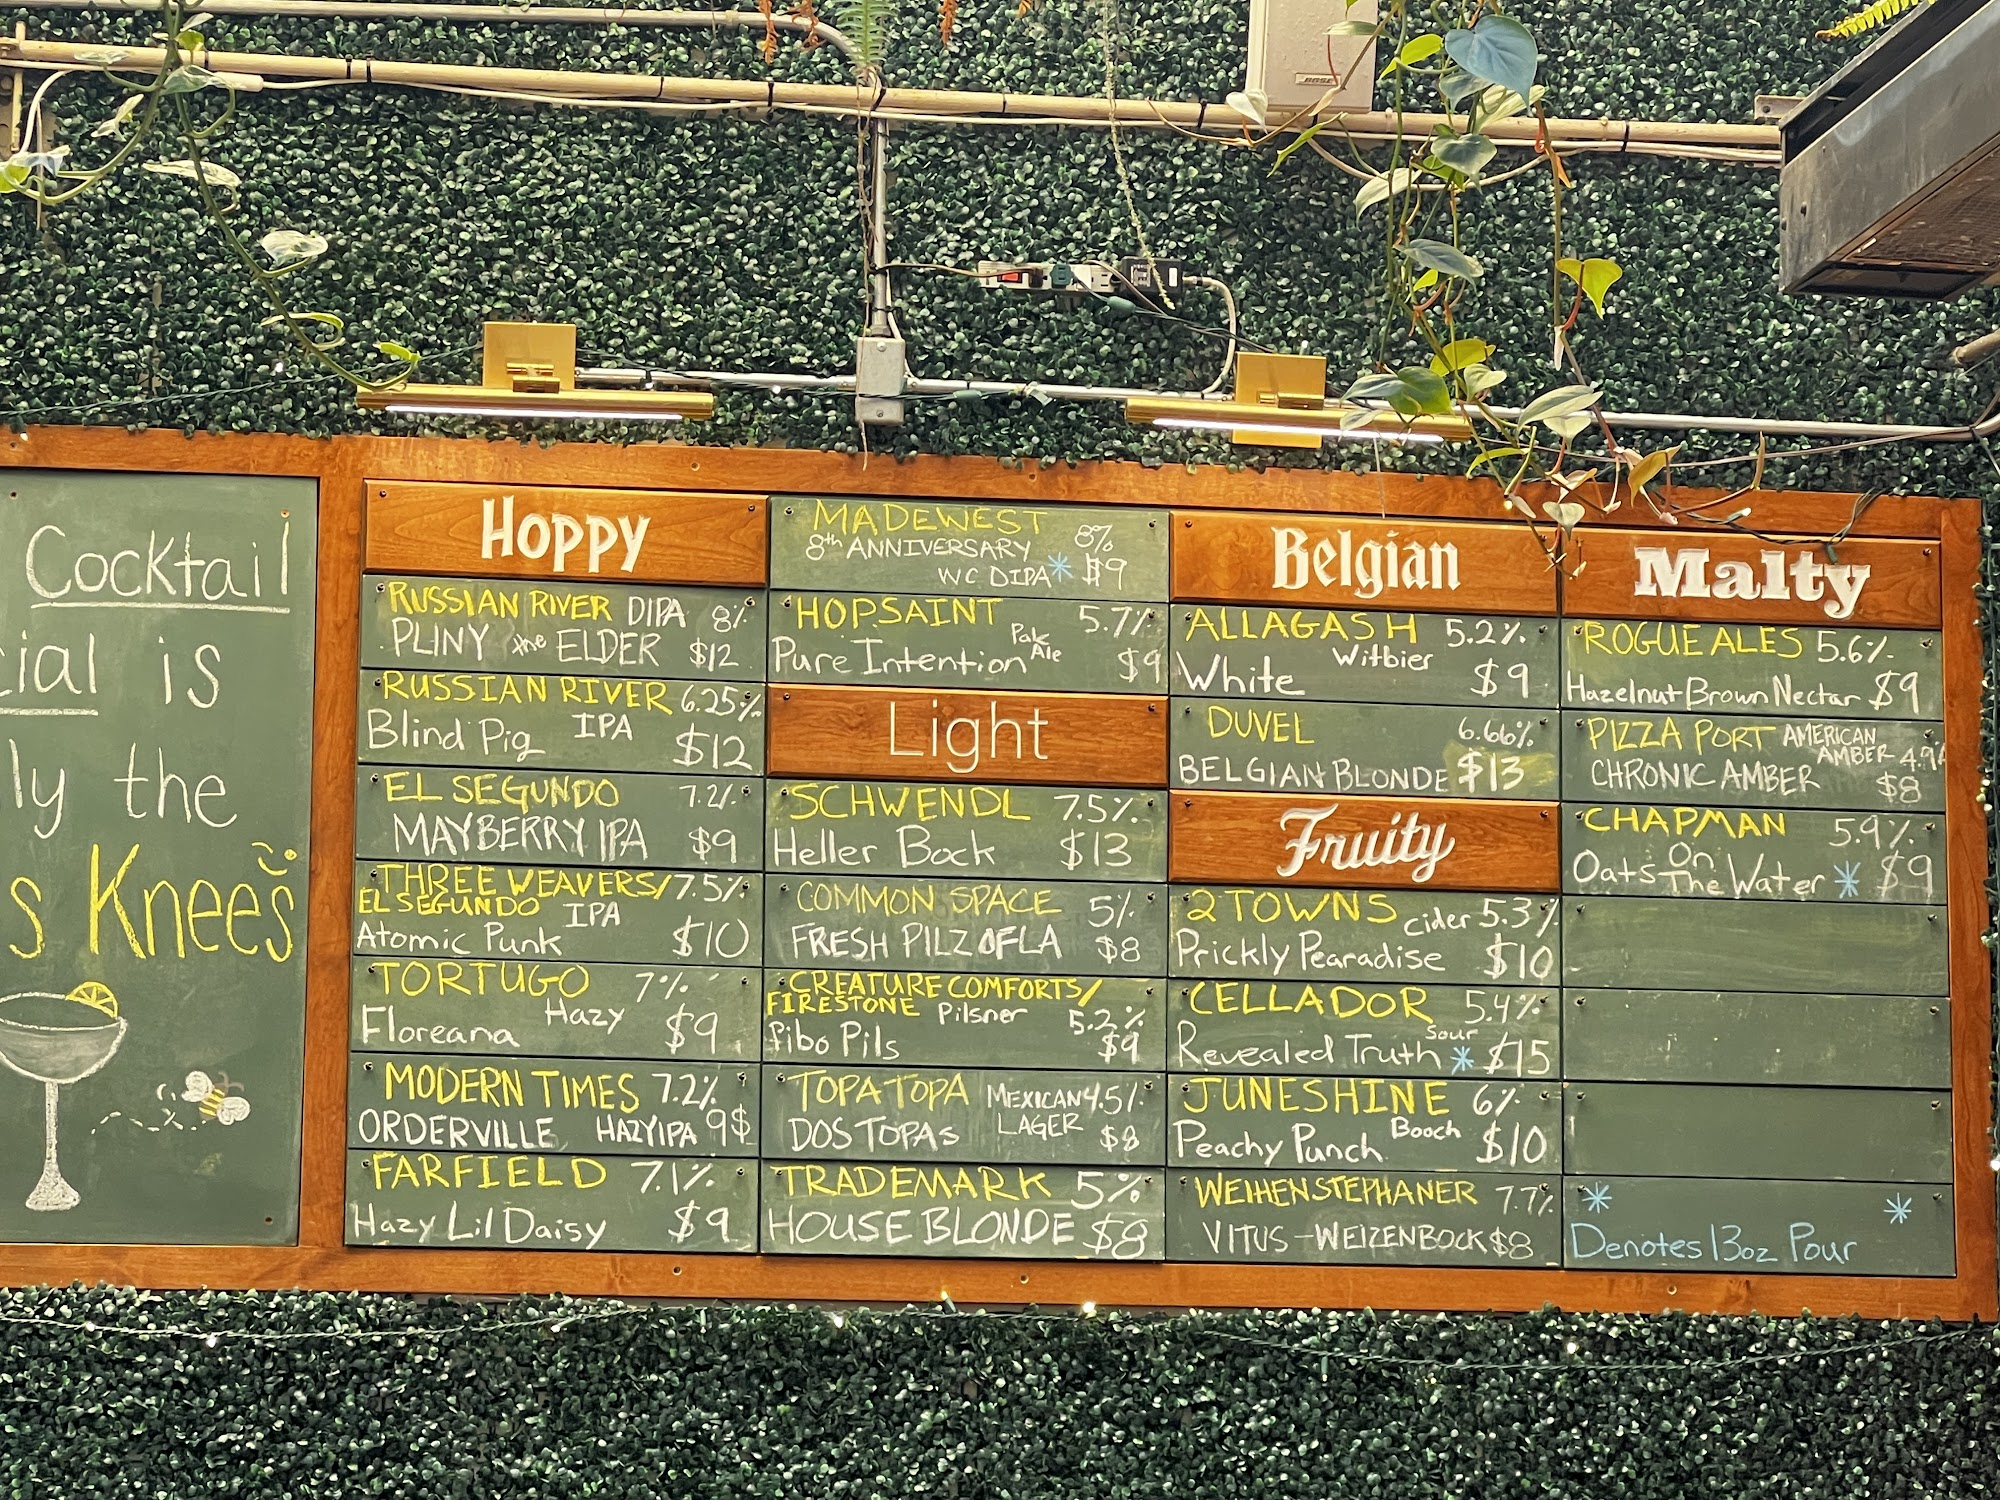 BOSE
Cocktail
ial is
ly the
s Knees
Hoppy
RUSSIAN RIVER DIPA 8%
PLINY the ELDER $12
RUSSIAN RIVER 6.25%
Blind Pig IPA $12
EL SEGUNDO 7.2%
MAYBERRY IPA $9
THREE WEAVERS/ 7.5%
EL SEGUNDO IPA
Atomic Punk $10
TORTUGO 7%
Floreana Hazy $9
MODERN TIMES 7.2%
ORDERVILLE HAZY IPA 9$
FARFIELD 7.1%
Hazy Lil Daisy $9
MADEWEST 8%
8th ANNIVERSARY
WC DIPA * $9
HOP SAINT 5.7%
Pure Intention Pale Ale $9
Light
SCHWENDL 7.5%
Heller Bock $13
COMMON SPACE 5%
FRESH PILZ OF LA $8
CREATURE COMFORTS/
FIRESTONE Pilsner 5.2%
fibo Pils $9
TOPA TOPA MEXICAN 4.5%
DOS TOPAS LAGER $8
TRADEMARK 5%
HOUSE BLONDE $8
Belgian
ALLAGASH 5.2%
White Witbier $9
DUVEL 6.66%
BELGIAN BLONDE $13
Fruity
2 TOWNS Cider 5.3%
Prickly Pearadise $10
CELLADOR 5.4%
Revealed Truth Sour * $15
JUNESHINE 6%
Peachy Punch Booch $10
WEIHENSTEPHANER 7.7%
VITUS - WEIZENBOCK $8
Malty
ROGUE ALES 5.6%
Hazelnut Brown Nectar $9
PIZZA PORT AMERICAN
AMBER 4.9%
CHRONIC AMBER $8
CHAPMAN 5.9%
Oats On The Water * $9
* *
Denotes 13oz Pour